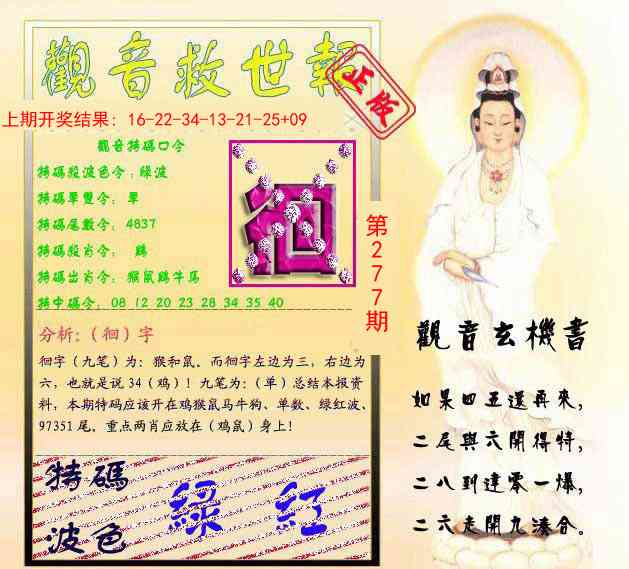 觀音救世報
正版
上期开奖结果：16-22-34-13-21-25+09
觀音特碼口令
特碼段波色令：綠波
特碼單雙令：單
特碼尾數令：4837
特碼段肖令：鷄
特碼出肖令：猴鼠鷄牛馬
特中碼令：08 12 20 23 28 34 35 40
徊
第277期
分析：（徊）字
徊字（九笔）为：猴和鼠。而徊字左边为三，右边为
六，也就是说34（鸡）！九笔为：（单）总结本报资
料：本期特码应该开在鸡猴鼠马牛狗、单数、绿红波、
97351尾。重点两肖应放在（鸡鼠）身上！
特碼
波色
綠 紅
觀音玄機書
如果四五還再來，
二尾與六開得特，
二八到達零一爆，
二六走開九湊合。